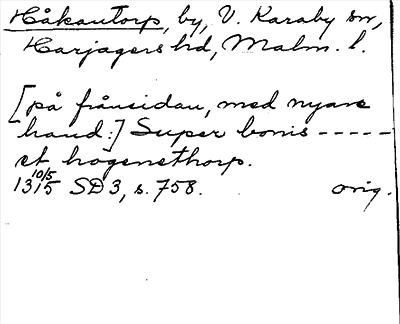 Håkantorp, by, V. Karaby sn,
Harjagers hd, Malm. l.
[på frånsidan, med nyare
hand:] Super bonis -----
et hogenethorp.
13 10/5 15 SD 3, s. 758. orig.